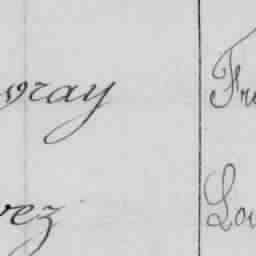 vray Fre
vez Lou